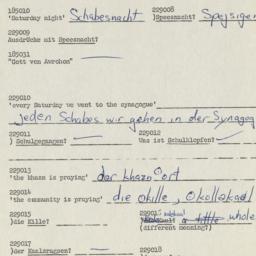 185010
'Saturday night' Schabesnacht
229008
)Speesnacht?
229009
Ausdrücke mit Speesnacht?
185031
"Gott von Avrohom"
229010
'every Saturday we went to the synagogue'
jeden Schabes wir gehen in der Synagog
229011
) Schulgegangen?
229012
Was ist Schulklopfen?
229013
'the khazn is praying' der khazn ort
229014
'the community is praying' die okille,
229015
)die Kille?
a little whole
(different meaning?)
229017
)der
229018